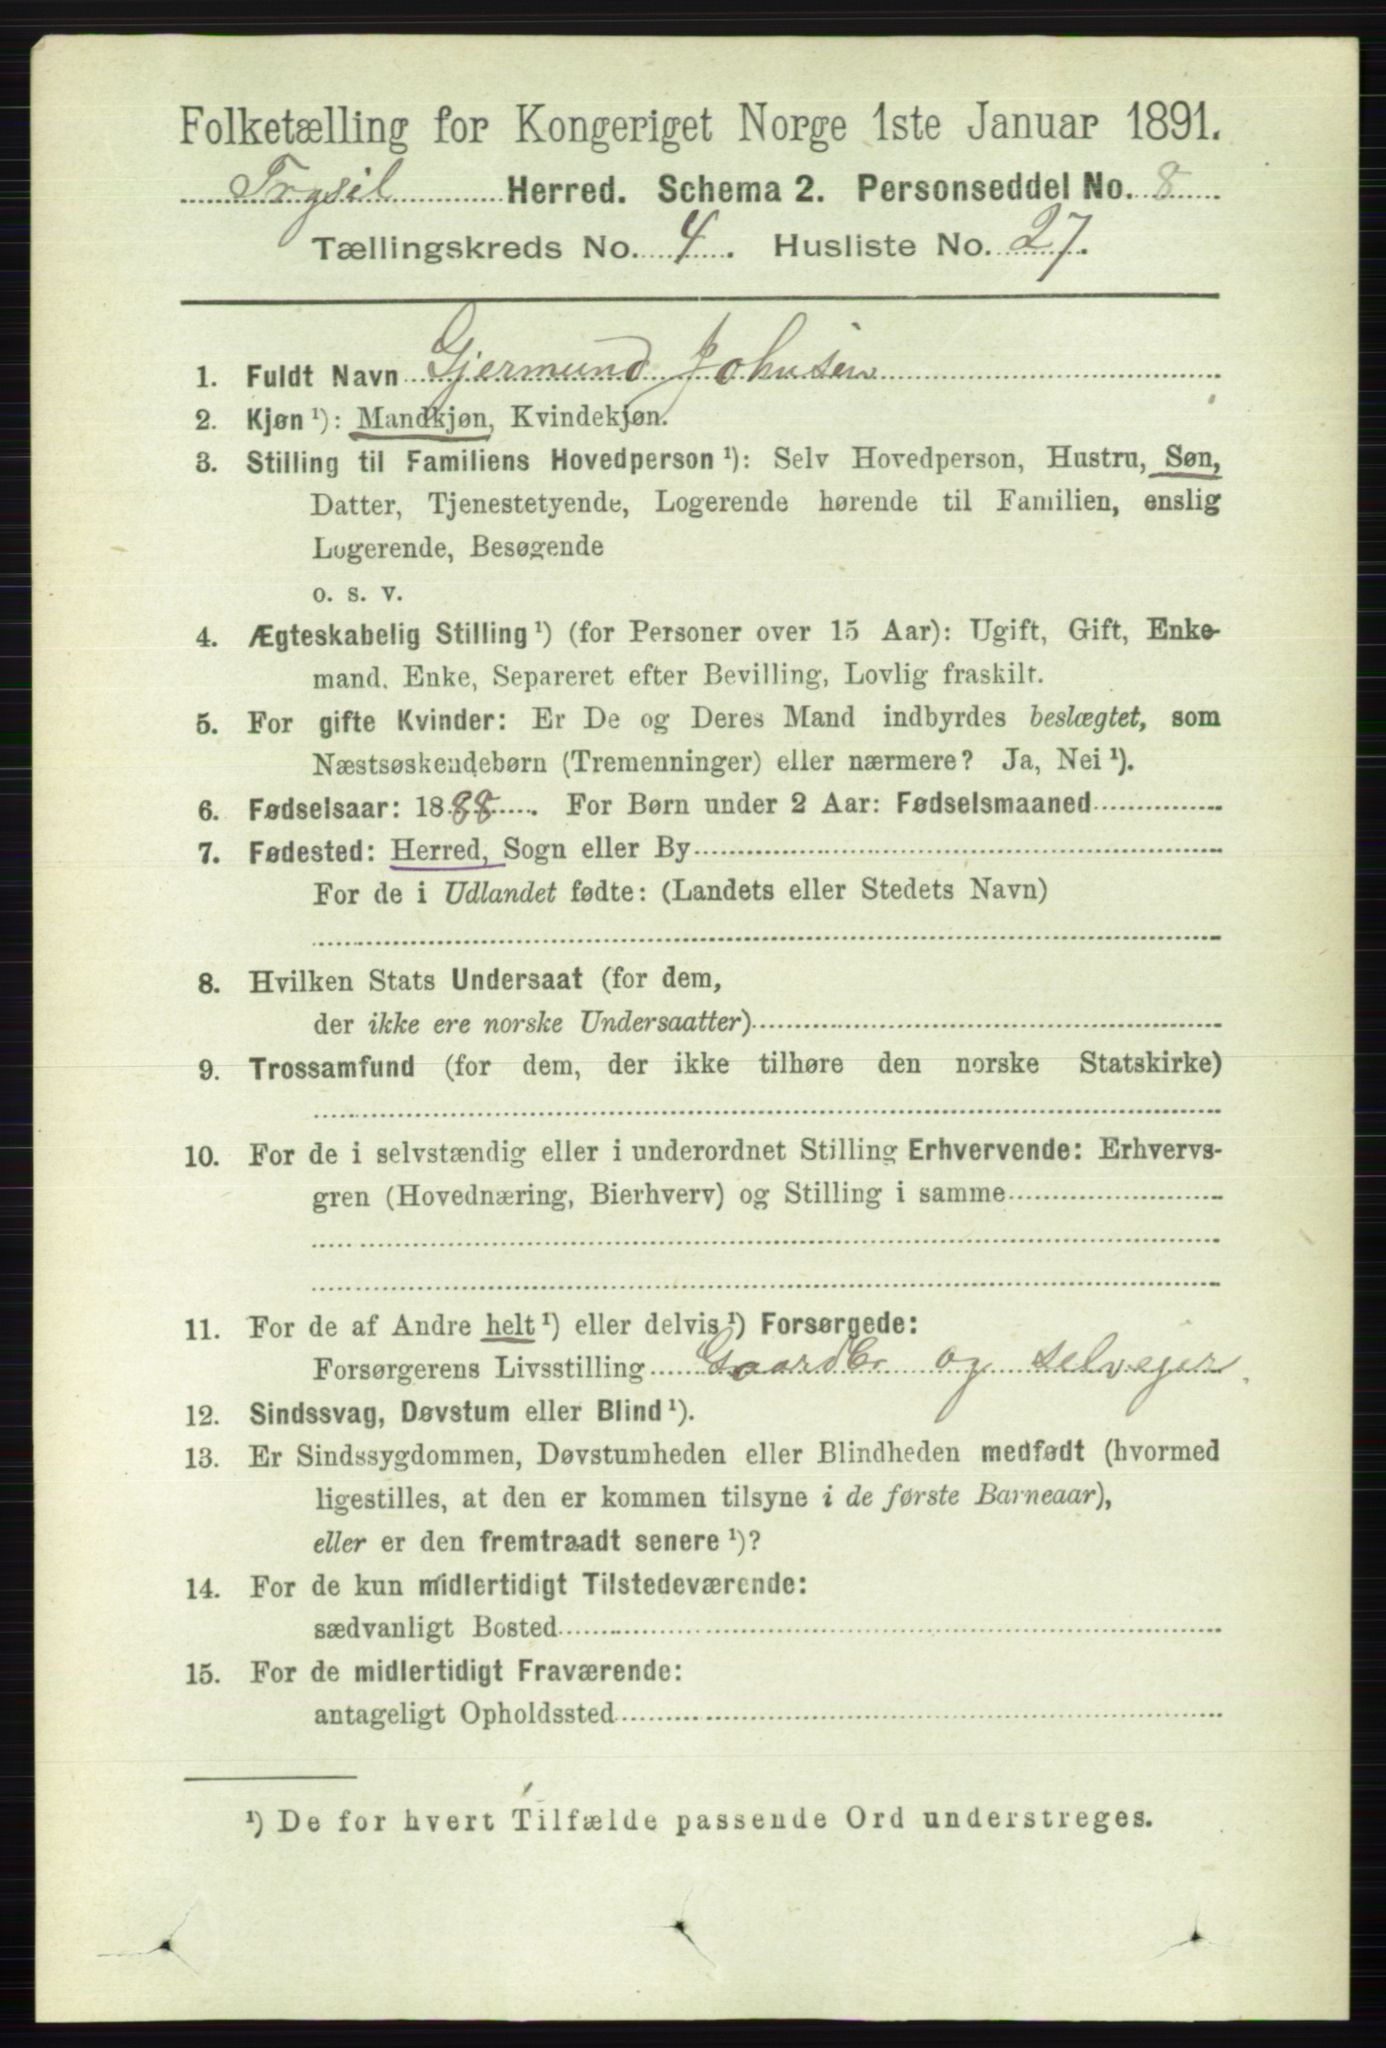 Folketælling for Kongeriget Norge 1ste Januar 1891.
Trysil Herred. Schema 2. Personseddel No. 8
Tællingskreds No. 4. Husliste No. 27.
1. Fuldt Navn Gjermund Johnsen
2. Kjøn ¹): Mandkjøn, Kvindekjøn.
3. Stilling til Familiens Hovedperson ¹): Selv Hovedperson, Hustru, Søn,
Datter, Tjenestetyende, Logerende hørende til Familien, enslig
Logerende, Besøgende
o. s. v.
4. Ægteskabelig Stilling ¹) (for Personer over 15 Aar): Ugift, Gift, Enke-
mand, Enke, Separeret efter Bevilling, Lovlig fraskilt.
5. For gifte Kvinder: Er De og Deres Mand indbyrdes beslægtet, som
Næstsøskendebørn (Tremenninger) eller nærmere? Ja, Nei ¹).
6. Fødselsaar: 1888. For Børn under 2 Aar: Fødselsmaaned
7. Fødested: Herred, Sogn eller By
For de i Udlandet fødte: (Landets eller Stedets Navn)
8. Hvilken Stats Undersaat (for dem,
der ikke ere norske Undersaatter)
9. Trossamfund (for dem, der ikke tilhøre den norske Statskirke)
10. For de i selvstændig eller i underordnet Stilling Erhvervende: Erhvervs-
gren (Hovednæring, Bierhverv) og Stilling i samme
11. For de af Andre helt ¹) eller delvis ¹) Forsørgede:
Forsørgerens Livsstilling Gaardbr og selvejer.
12. Sindssvag, Døvstum eller Blind ¹).
13. Er Sindssygdommen, Døvstumheden eller Blindheden medfødt (hvormed
ligestilles, at den er kommen tilsyne i de første Barneaar),
eller er den fremtraadt senere ¹)?
14. For de kun midlertidigt Tilstedeværende:
sædvanligt Bosted
15. For de midlertidigt Fraværende:
antageligt Opholdssted
¹) De for hvert Tilfælde passende Ord understreges.